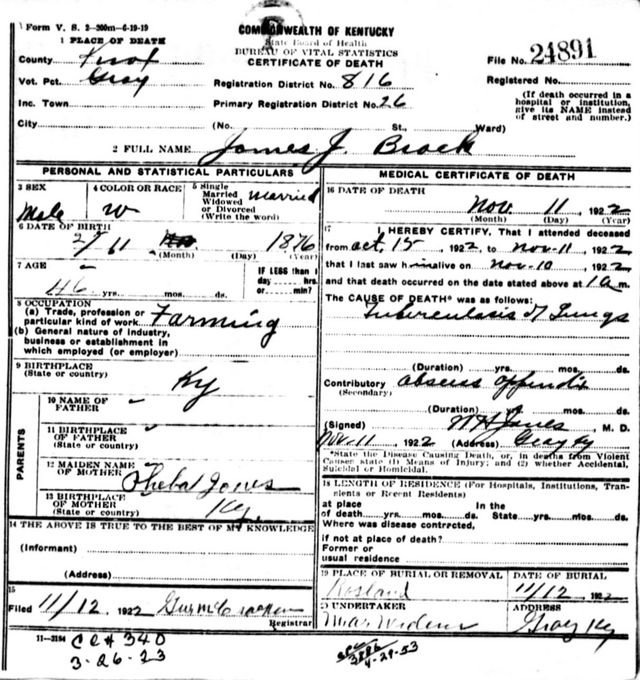 Form V. S. 2-300m-6-19-19
COMMONWEALTH OF KENTUCKY
State Board of Health
BUREAU OF VITAL STATISTICS
CERTIFICATE OF DEATH
1 PLACE OF DEATH
County Knox
Vot. Pct. Gray
Inc. Town
City
Registration District No. 816
Primary Registration District No. 26
(No. St., Ward)
File No. 24891
Registered No.
(If death occurred in a
hospital or institution,
give its NAME instead
of street and number.)
2 FULL NAME James J. Brock
PERSONAL AND STATISTICAL PARTICULARS
3 SEX
Male
4 COLOR OR RACE
W
5 Single
Married
Widowed
or Divorced
(Write the word)
Married
6 DATE OF BIRTH
2/11 1876
(Month) (Day) (Year)
7 AGE
46 yrs. mos. ds.
IF LESS than 1
day hrs.
or min?
8 OCCUPATION
(a) Trade, profession or
particular kind of work Farming
(b) General nature of industry,
business or establishment in
which employed (or employer)
9 BIRTHPLACE
(State or country)
Ky
PARENTS
10 NAME OF
FATHER
11 BIRTHPLACE
OF FATHER
(State or country)
12 MAIDEN NAME
OF MOTHER
Pheba Jones
13 BIRTHPLACE
OF MOTHER
(State or country)
Ky.
14 THE ABOVE IS TRUE TO THE BEST OF MY KNOWLEDGE
(Informant)
(Address)
15
Filed 11/12 1922
Registrar
11-3184
MEDICAL CERTIFICATE OF DEATH
16 DATE OF DEATH
Nov 11 1922
(Month) (Day) (Year)
17 I HEREBY CERTIFY, That I attended deceased
from Oct, 15 1922, to Nov-11, 1922
that I last saw him alive on Nov-10, 1922
and that death occurred on the date stated above at 1 a m.
The CAUSE OF DEATH* was as follows:
Tuberculasis of Lungs
(Duration) yrs. mos. ds.
Contributory absess appendix
(Secondary)
(Duration) yrs. mos. ds.
(Signed) W H Jones, M. D.
Nov-11, 1922 (Address) Gray Ky
*State the Disease Causing Death, or, in deaths from Violent
Causes state (1) Means of Injury; and (2) whether Accidental,
Suicidal or Homicidal.
18 LENGTH OF RESIDENCE (For Hospitals, Institutions, Tran-
sients or Recent Residents)
at place In the
of death yrs. mos. ds. State yrs. mos. ds.
Where was disease contrcted,
if not at place of death?
Former or
usual residence
19 PLACE OF BURIAL OR REMOVAL
Rosland
DATE OF BURIAL
11/12, 1922
UNDERTAKER
ADDRESS
Gray Ky
CC# 340
3-26-23
4-29-53